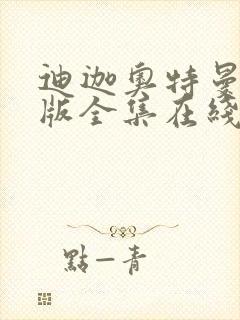 迪迦奥特曼
版全集在线
點一青